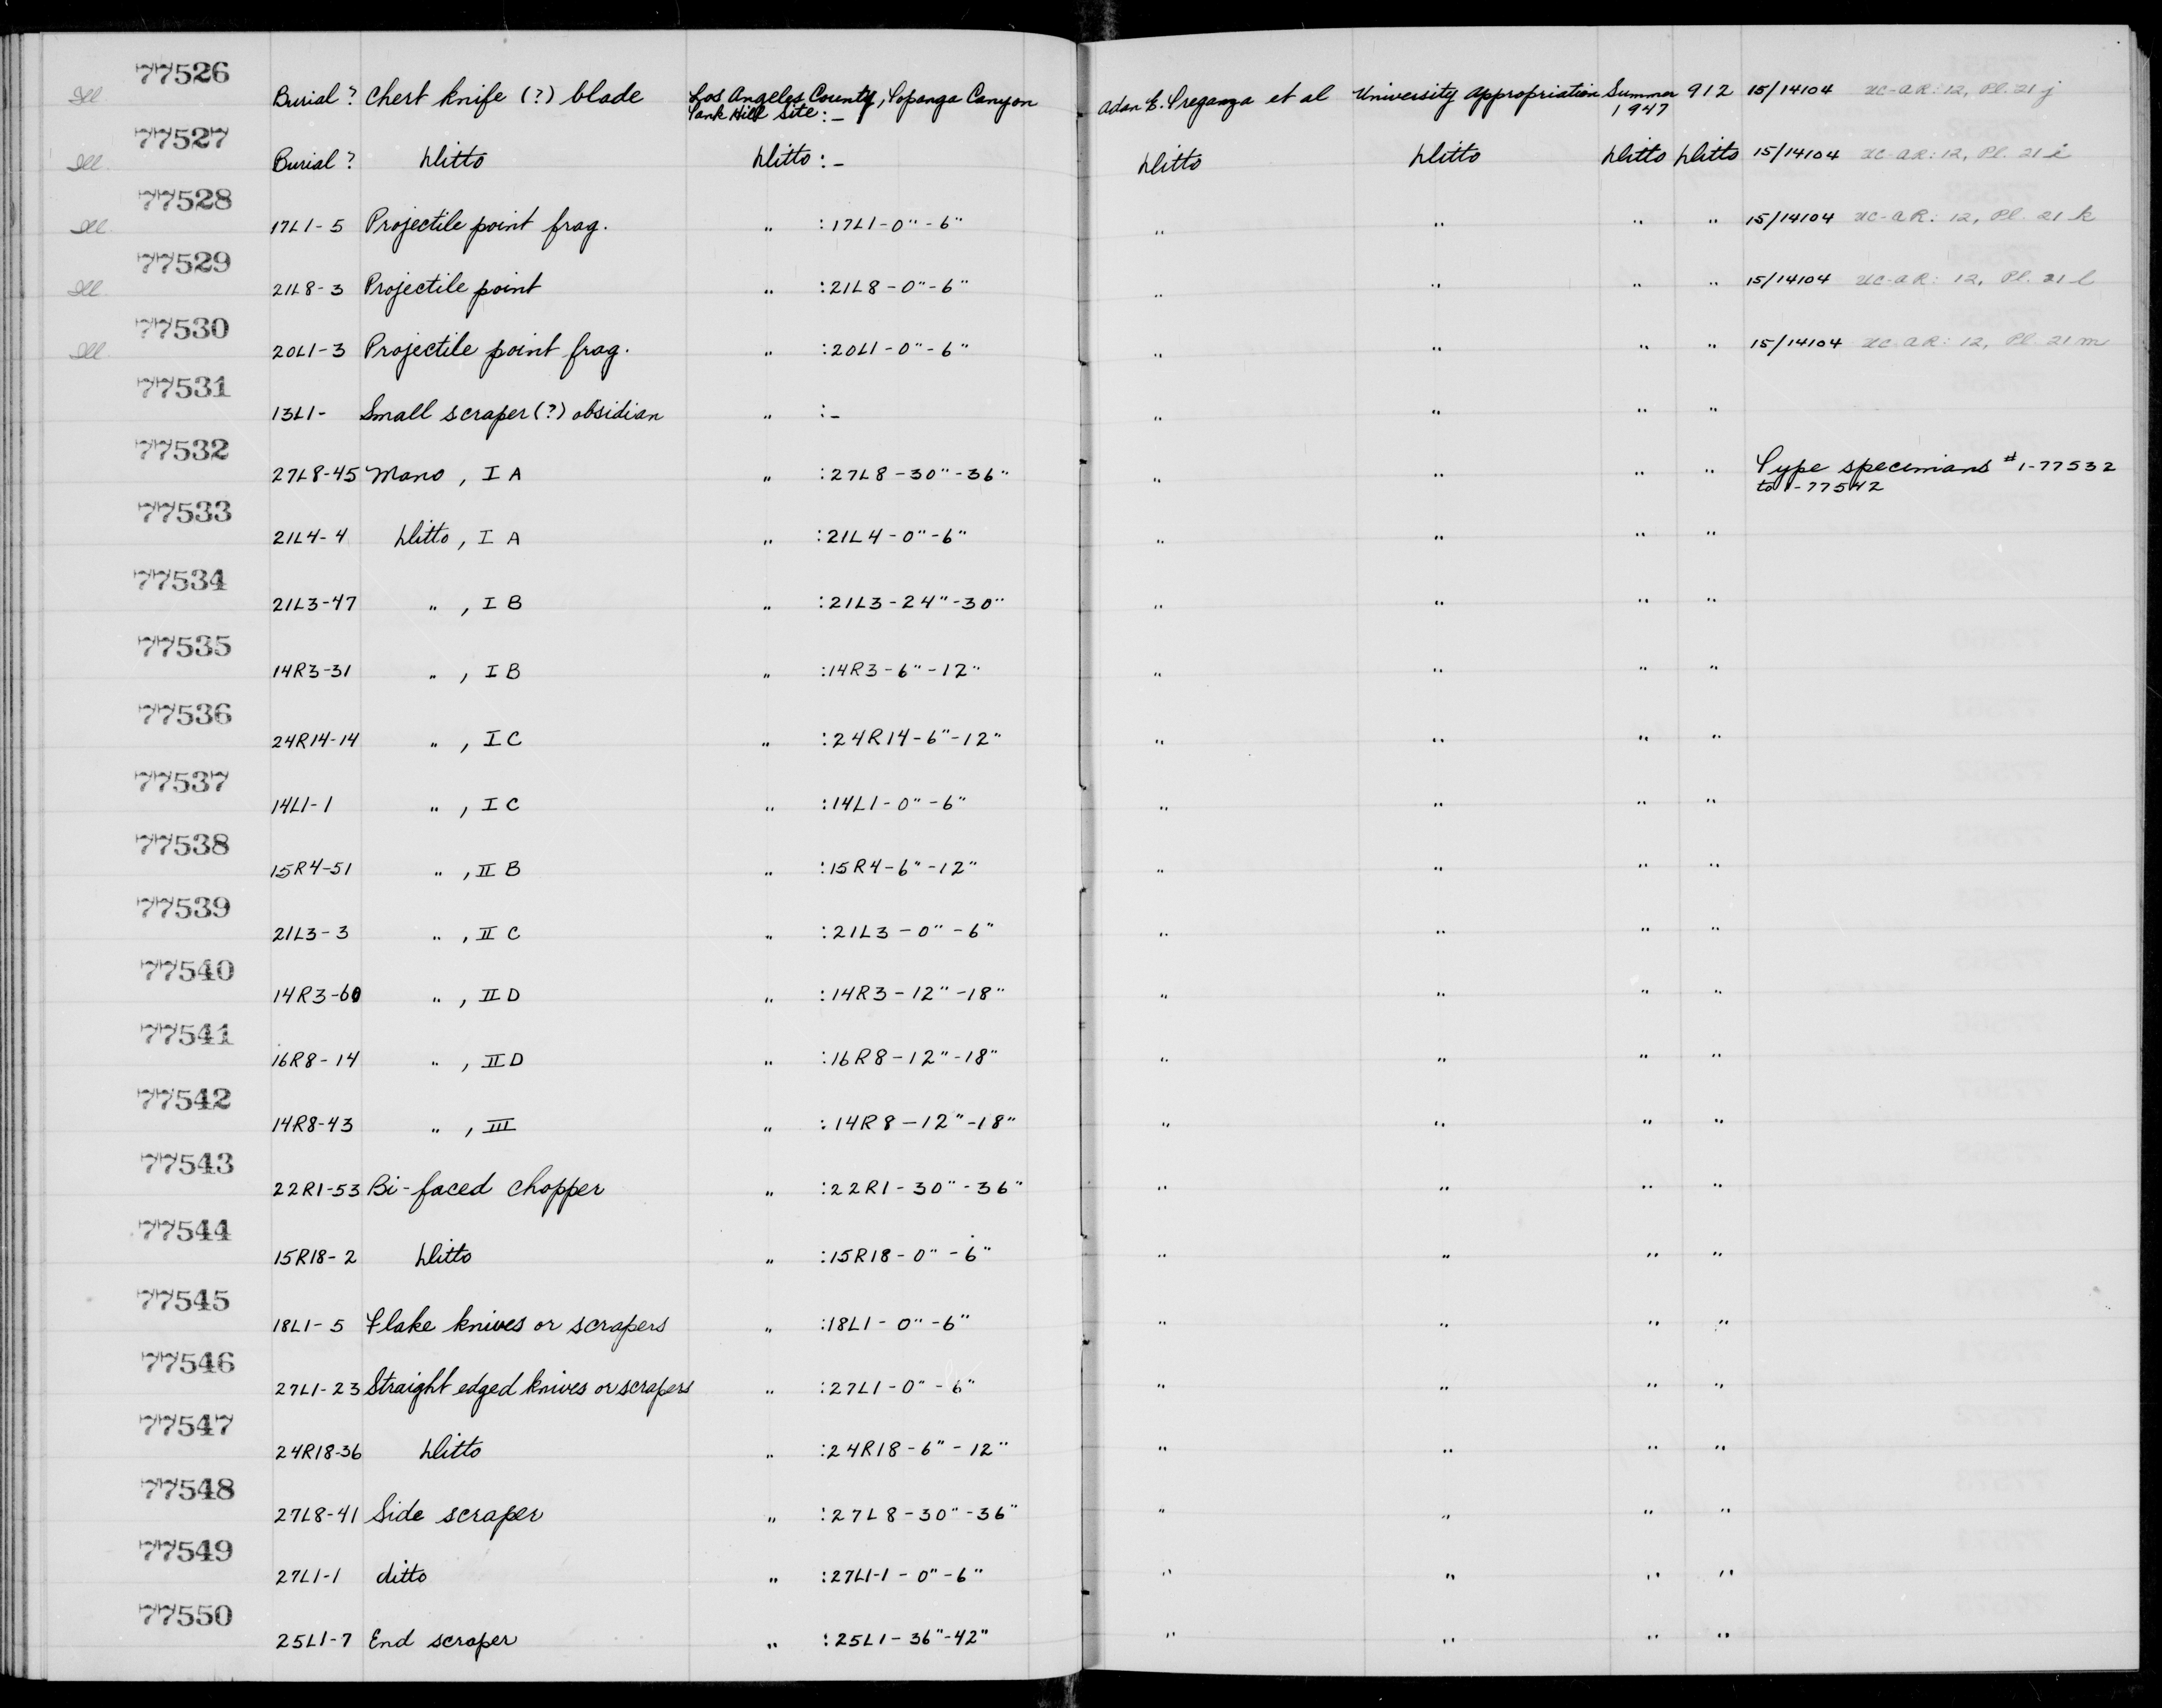 77526
Ill. Burial ? Chert knife (?) blade Los Angeles County, Topanga Canyon Adan E. Treganza et al University Appropriation Summer 912 15/14104 UC-AR: 12, Pl. 21 j
Tank Hill Site : – 1947
77527
Ill. Burial ? Ditto Ditto : – Ditto Ditto Ditto Ditto 15/14104 UC-AR: 12, Pl. 21 i
77528
Ill. 17L1-5 Projectile point frag. " : 17L1-0"-6" " " " " 15/14104 UC-AR: 12, Pl. 21 k
77529
Ill. 21L8-3 Projectile point " : 21L8-0"-6" " " " " 15/14104 UC-AR: 12, Pl. 21 l
77530
Ill. 20L1-3 Projectile point frag. " : 20L1-0"-6" " " " " 15/14104 UC-AR: 12, Pl. 21 m
77531
13L1- Small scraper (?) obsidian " : – " " " "
77532
27L8-45 Mano, I A " : 27L8-30"-36" " " " " Type specimans # 1-77532
to 1-77542
77533
21L4-4 Ditto, I A " : 21L4-0"-6" " " " "
77534
21L3-47 " , I B " : 21L3-24"-30" " " " "
77535
14R3-31 " , I B " : 14R3-6"-12" " " " "
77536
24R14-14 " , I C " : 24R14-6"-12" " " " "
77537
14L1-1 " , I C " : 14L1-0"-6" " " " "
77538
15R4-51 " , II B " : 15R4-6"-12" " " " "
77539
21L3-3 " , II C " : 21L3-0"-6" " " " "
77540
14R3-60 " , II D " : 14R3-12"-18" " " " "
77541
16R8-14 " , II D " : 16R8-12"-18" " " " "
77542
14R8-43 " , III " : 14R8-12"-18" " " " "
77543
22R1-53 Bi-faced chopper " : 22R1-30"-36" " " " "
77544
15R18-2 Ditto " : 15R18-0"-6" " " " "
77545
18L1-5 Flake knives or scrapers " : 18L1-0"-6" " " " "
77546
27L1-23 Straight edged knives or scrapers " : 27L1-0"-6" " " " "
77547
24R18-36 Ditto " : 24R18-6"-12" " " " "
77548
27L8-41 Side scraper " : 27L8-30"-36" " " " "
77549
27L1-1 ditto " : 27L1-1-0"-6" " " " "
77550
25L1-7 End scraper " : 25L1-36"-42" " " " "